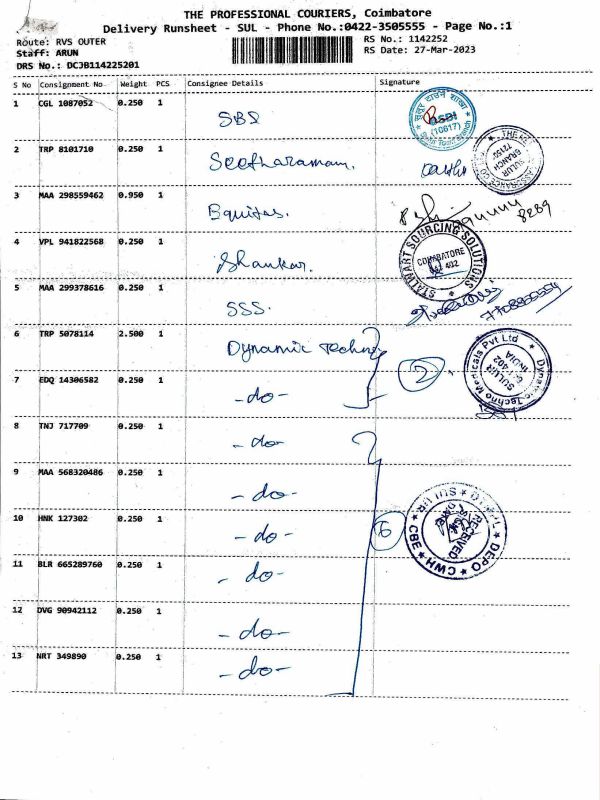 THE PROFESSIONAL COURIERS, Coimbatore
Delivery Runsheet - SUL - Phone No.:0422-3505555 - Page No.:1
Route: RVS OUTER
RS No.: 1142252
Staff: ARUN
RS Date: 27-Mar-2023
DRS No.: DCJB114225201
S No Consignment No Weight PCS Consignee Details Signature
1 CGL 1087052 0.250 1 SBS
SBI
(10617)
2 TRP 8101710 0.250 1 Seetharamam.
SULUR BRANCH
3 MAA 298559462 0.950 1 Equitas.
8289
4 VPL 941822568 0.250 1 Shankar.
STALWART SOURCING SOLUTIONS
COIMBATORE
641 402
5 MAA 299378616 0.250 1 SSS.
6 TRP 5078114 2.500 1 Dynamic Techno
2
Dynamic Techno Medicals Pvt Ltd
SULUR
INDIA
7 EDQ 14306582 0.250 1 -do-
8 TNJ 717709 0.250 1 -do-
9 MAA 568320486 0.250 1 -do-
10 HNK 127302 0.250 1 -do-
6
DEPO ★ CWH ★ CBE ★
RECEIVED
11 BLR 665289760 0.250 1 -do-
12 DVG 90942112 0.250 1 -do-
13 NRT 349890 0.250 1 -do-